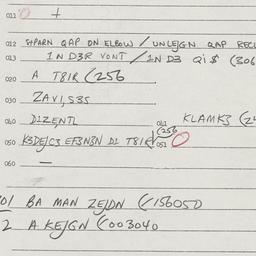 011 O +
012 SHPARN QAP ON ELBOW / UNLEJGN QAP RECL
013 1N D3R VONT / 1N D3 Qi$ (306
020 A T81R (256
030 ZAVI,S3S
040 D1ZENTL 041 KLAMK3 (24
(256
050 K3DEJCS EF3N3N D1 T81R 051 O
060 —
01 BA MAN ZEJDN (/156050
2 A KEJGN (/003040